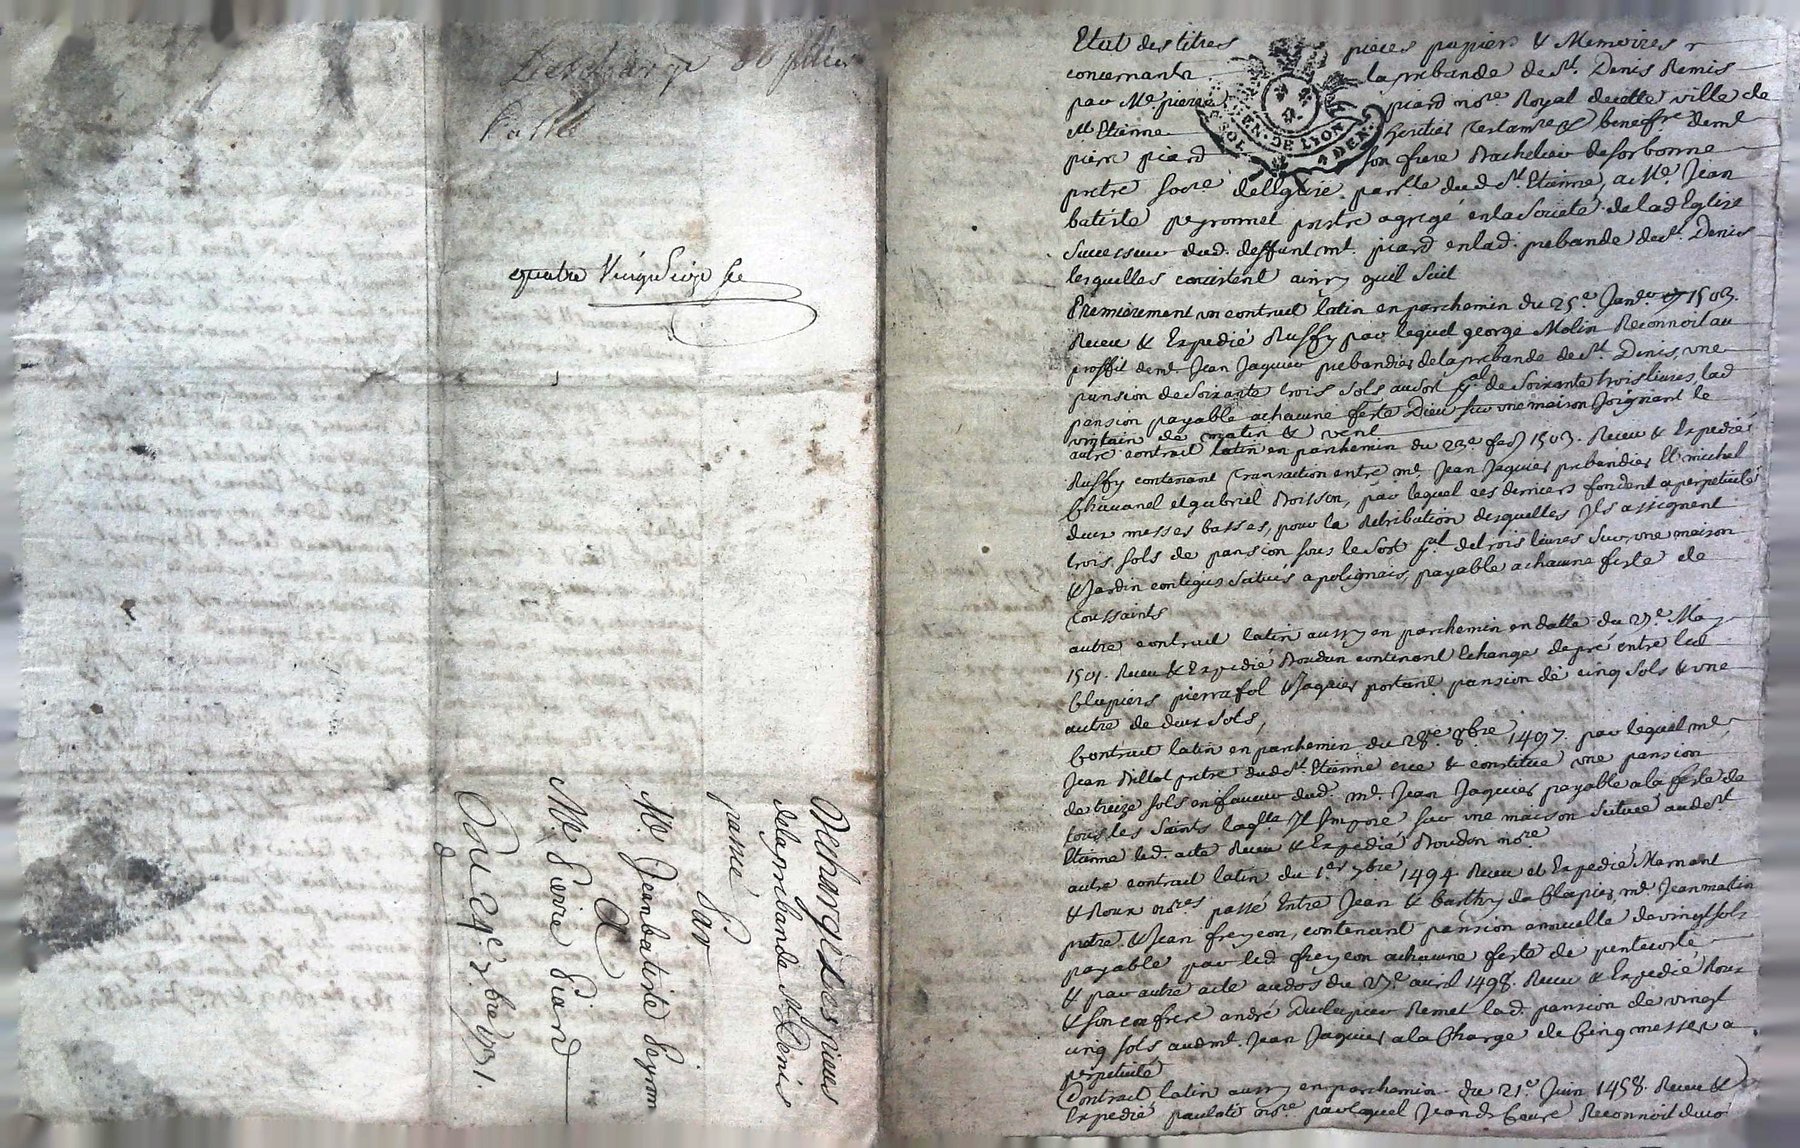 Descharge 30
quatre Vingt Seize
Descharge des pieces
de la prebande St Denis
Par
Mr Jean batiste Peyron
A
Me Pierre Piard
Du 24e 7bre 1731.
GEN. DE LYON
SOL 4 DEN.
Etat des titres pieces papiers & Memoires
concernants la prebande de St. Denis Remis
par Me pierre piard nore Royal de cette ville de
St Etienne heritier testamre & benefre de mr
pierre piard son frere Bachelier de sorbonne
pretre socre de leglise parlle dud St. Etienne, a Me. Jean
batiste peyronnel pretre agregé en la Societé de lad Eglise
Successeur dud. deffunt mr. piard en lad. prebande de St. Denis
lesquelles consistent ainsy quil Suit
Premierement un contrat latin en parchemin du 25e Janvr 1503.
Receu & Expedié Ruffy par lequel george Molin Reconnoit au
proffit de mr Jean Jaquier prebandier de la prebande de St. Denis, une
pansion de Soixante trois Sols au Sort pal de Soixante trois livres lad
pension payable a chacune feste Dieu sur une maison Joignant le
vintain de matin & vent
autre contrait latin en parchemin du 23e fev 1503. Receu & Expedié
Ruffy contenant Transaction entre mr Jean Jaquier prebandier Et michel
Chavanel et gabriel Boisson, par lequel ces derniers fondent a perpetuité
deux messes basses, pour la Retribution desquelles Ils assignent
trois sols de pansion sous le Sort pal de trois livres Sur une maison
& Jardin contigus Situés a polignais, payable a chacune feste de
Toussaints
autre contrait latin aussy en parchemin en datte du 27e May
1501. Receu & Expedié Boudon contenant Echange de pré entre led
Clapiers pierrafol & Jaquier portant pansion de cinq Sols & une
autre de deux Sols,
Contrait latin en parchemin du 28e. 8bre 1497. par lequel mr
Jean Billot pretre dud St Etienne cree & constitue une pansion
de treize sols en faveur dud. mr. Jean Jaquier payable a la feste de
tous les Saints laqlle Il Impose sur une maison Scituée aud St
Etienne led. acte Receu & Expedié Boudon nore
autre contrait latin du 1er 7bre 1494 Receu et Expedié Mamant
& Roux nores passé Entre Jean & barthy de Clapier, mr Jean matin
pretre & Jean freycon, contenant pansion annuelle de vingt sols
payable par led freycon a chacune feste de pentecoste
& par autre acte au dos du 27e avril 1498. Receu & Expedié Roux
& son confrere andré Duclapier Remet lad. pansion de vingt
cinq sols aud mr. Jean Jaquier a la Charge de Cinq messes a
perpetuité
Contrait latin aussy en parchemin du 21e Juin 1458. Receu &
Expedié paulati nore par lequel Jean de Reconnoit